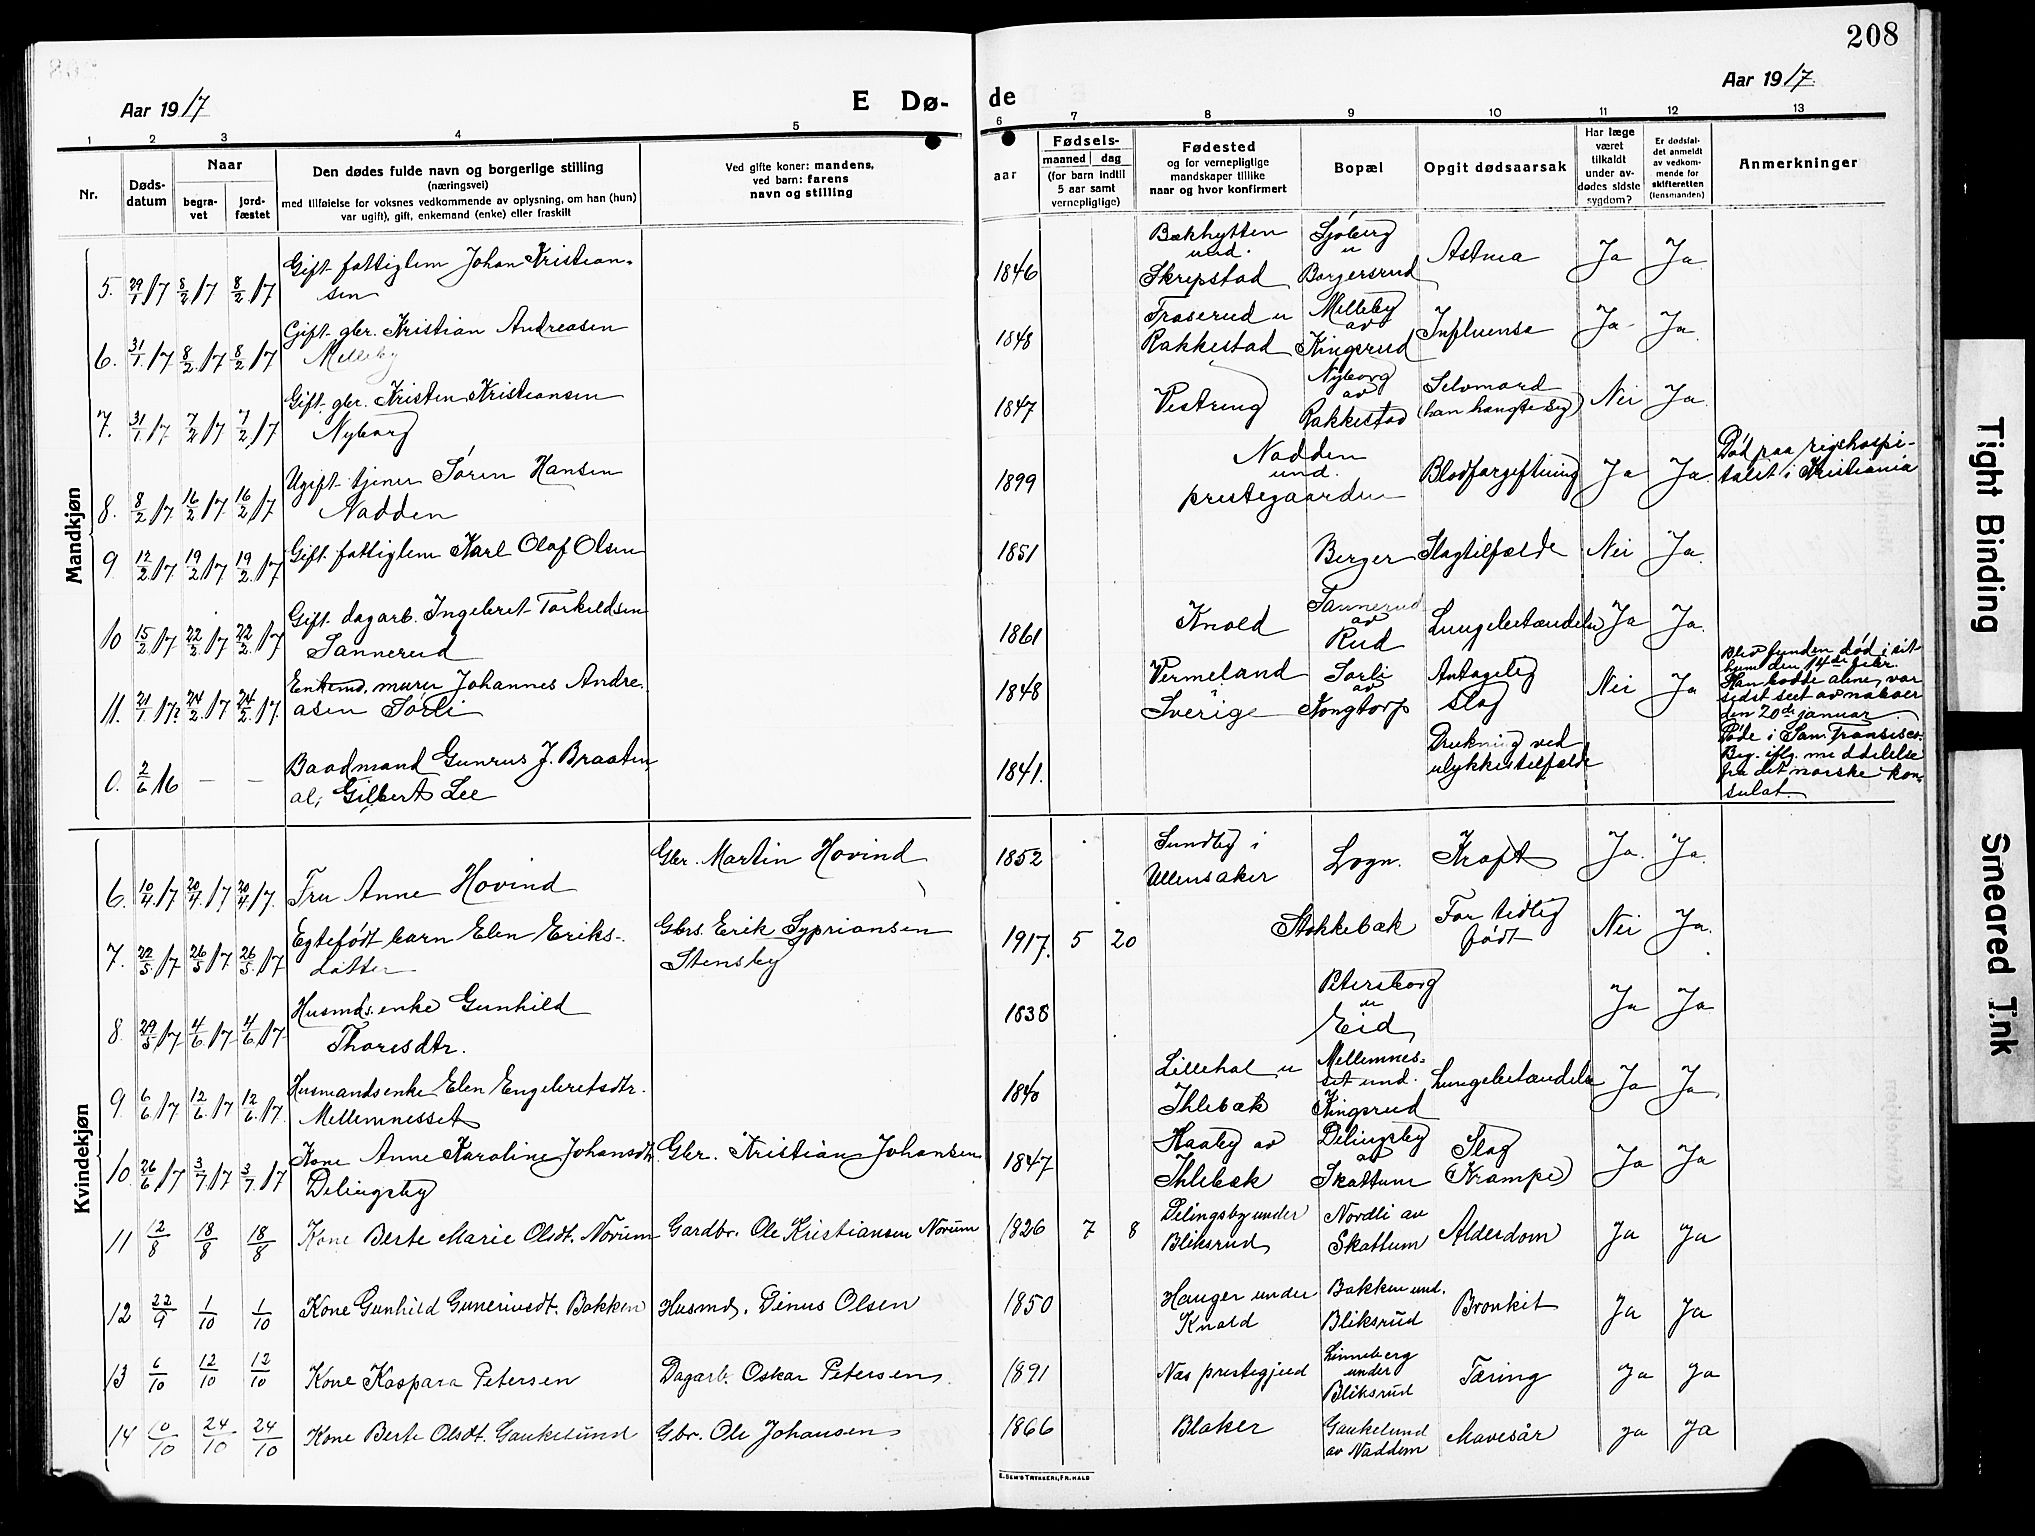 208
Aar 1917
E Dø-
de
Aar 1917.
1 2 3 4 5 6 7 8 9 10 11 12 13
Nr.
Døds-
datum
Naar
begra-
vet
jord-
fæstet
Den dødes fulde navn og borgerlige stilling
(næringsvei)
med tilføielse for voksnes vedkommende av oplysning, om han (hun)
var ugift), gift, enkemand (enke) eller fraskilt
Ved gifte koner: mandens,
ved barn: farens
navn og stilling
aar
Fødsels-
maaned dag
(for barn indtil
5 aar samt
vernepligtige)
Fødested
og for vernepligtige
mandskaper tillike
naar og hvor konfirmert
Bopæl
Opgit dødsaarsak
Har læge
været
tilkaldt
under av-
dødes sidste
sygdom?
Er dødsfal-
det anmeldt
av vedkom-
mende for
skifteretten
(lensmanden)
Anmerkninger
Mandkjøn
5. 29/1 17 8/2 17 8/2 17 Gift fattiglem Johan Kristian-
sen
1846 Bækhytten
und.
Skrepstad
Sjøberg
u
Borgersrud
Astma Ja Ja
6. 31/1 17 8/2 17 8/2 17 Gift gbr. Kristian Andreasen
Melleby
1848 Fraserud u
Rakkestad
Melleby
av
Kingsrud
Influensa Ja Ja.
7. 31/1 17 7/2 17 7/2 17 Gift gbr. Kristen Kristiansen
Nyborg
1847 Vestreng
Nyborg
av
Rakkestad
Selvmord
(han hængte sig) Nei Ja.
8. 8/2 17 16/2 17 16/2 17 Ugift tjener Søren Hansen
Nadden
1899 Nadden
und.
prestegaarden
Blodforgiftning Ja Ja.
Død paa rigshospi-
talet i Kristiania
9 12/2 17 19/2 17 19/2 17 Gift fattiglem Karl Olaf Olsen
1851 Berger Slagtilfælde Nei Ja.
10 15/2 17 22/2 17 22/2 17 Gift dagarb. Ingebret Torkildsen
Sannerud
1861 Knold
Sannerud
av
Rud
Lungebetændelse Ja Ja.
11. 21/1 17? 24/2 17 24/2 17. Enkemd. murer Johannes Andre-
asen Sørli
1848 Vermeland
Sverige
Sørli
av
Kongtorp
Antagelig
slag
Nei Ja
Blev funden død i sit
hjem den 14de febr.
Han bodde alene, var
sidst seet av naboer
den 20de januar
0. 2/6 16 — — Baadmand Gunrus J. Braaten,
al; Gilbert Lee
1841. Drukning ved
ulykkestilfælde
Døde i San Fransisco.
Beg. iflg. meddelelse
fra det norske kon-
sulat.
Kvindekjøn
6. 10/4 17 20/4 17 20/4 17. Fru Anne Hovind
Gbr. Martin Hovind
1852 Sundby i
Ullensaker
Logn. Kræft Ja. Ja.
7. 22/5 17 26/5 17 26/5 17 Egtefødt barn Elen Eriks-
datter
Gbrs. Erik Sypriansen
Stensby
1917. 5 20 Stokkebæk
For tidlig
født
Nei Ja.
8 29/5 17 4/6 17 4/6 17 Husmds. enke Gunhild
Thoresdtr.
1838 Petersborg
u
Eid
Ja Ja
9 6/6 17 12/6 17 12/6 17. Husmandsenke Elen Engebretsdtr.
Mellemnesset
1840 Lillehol u
Ihlebæk
Mellemnes-
set und.
Kingsrud
Lungebetændelse Ja Ja
10. 26/6 17 3/7 17 3/7 17 Kone Anne Karoline Johansdtr.
Delingsby
Gbr. Kristian Johansen
1847 Haaby av
Ihlebæk
Delingsby
av
Skattum
Slag
(Krampe)
Ja Ja
11 12/8 18/8 18/8 Kone Berte Marie Olsdt. Norum
Gardbr. Ole Kristiansen Norum
1826 7 8 Delingsby under
Bliksrud
Nordli av
Skattum
Alderdom Ja Ja
12 22/9 1/10 1/10 Kone Gunhild Guneriusdt. Bakken
Husmd. Dinus Olsen
1850 Hauger under
Knold
Bakken und.
Bliksrud
Bronkit Ja Ja
13 6/10 12/10 12/10 Kone Kaspara Petersen
Dagarb. Oskar Petersen
1891 Nes prestegjeld
Linneberg
under
Bliksrud
Tæring Ja Ja
14 10/10 24/10 24/10 Kone Berte Olsdt. Gaukelund
Gbr. Ole Johansen
1866 Blaker
Gaukelund
av Naddem
Mavesår Ja Ja
E. SEM'S TRYKKERI, FR. HALD
Tight Binding
Smeared Ink